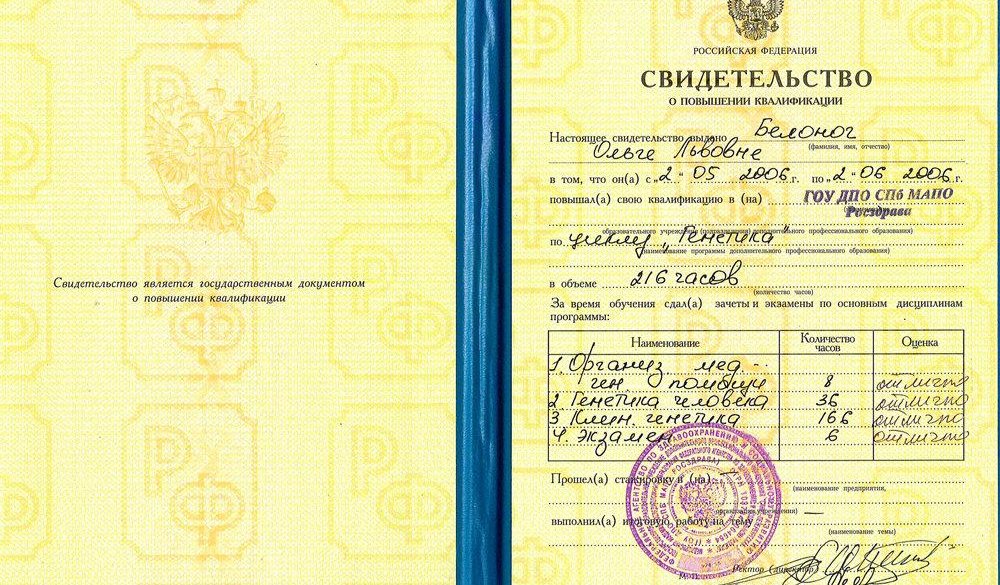 Свидетельство является государственным документом
о повышении квалификации
РОССИЙСКАЯ ФЕДЕРАЦИЯ
СВИДЕТЕЛЬСТВО
О ПОВЫШЕНИИ КВАЛИФИКАЦИИ
Настоящее свидетельство выдано Белоног
(фамилия, имя, отчество)
Ольге Львовне
в том, что он(а) с „2" 05 2006 г. по „2" 06 2006 г.
повышал(а) свою квалификацию в (на) ГОУ ДПО СПб МАПО
Росздрава
образовательного учреждения (подразделения) дополнительного профессионального образования)
по циклу „Генетика"
(наименование программы дополнительного профессионального образования)
в объеме 216 часов
(количество часов)
За время обучения сдал(а) зачеты и экзамены по основным дисциплинам
программы:
Наименование Количество часов Оценка
1. Организ мед.
ген. помощи 8 отлично
2. Генетика человека 36 отлично
3. Клин. генетика 166 отлично
4. Экзамен 6 отлично
Прошел(а) стажировку в (на) —
(наименование предприятия,
организации, учреждения)
выполнил(а) итоговую работу на тему —
(наименование темы)
Ректор (директор)